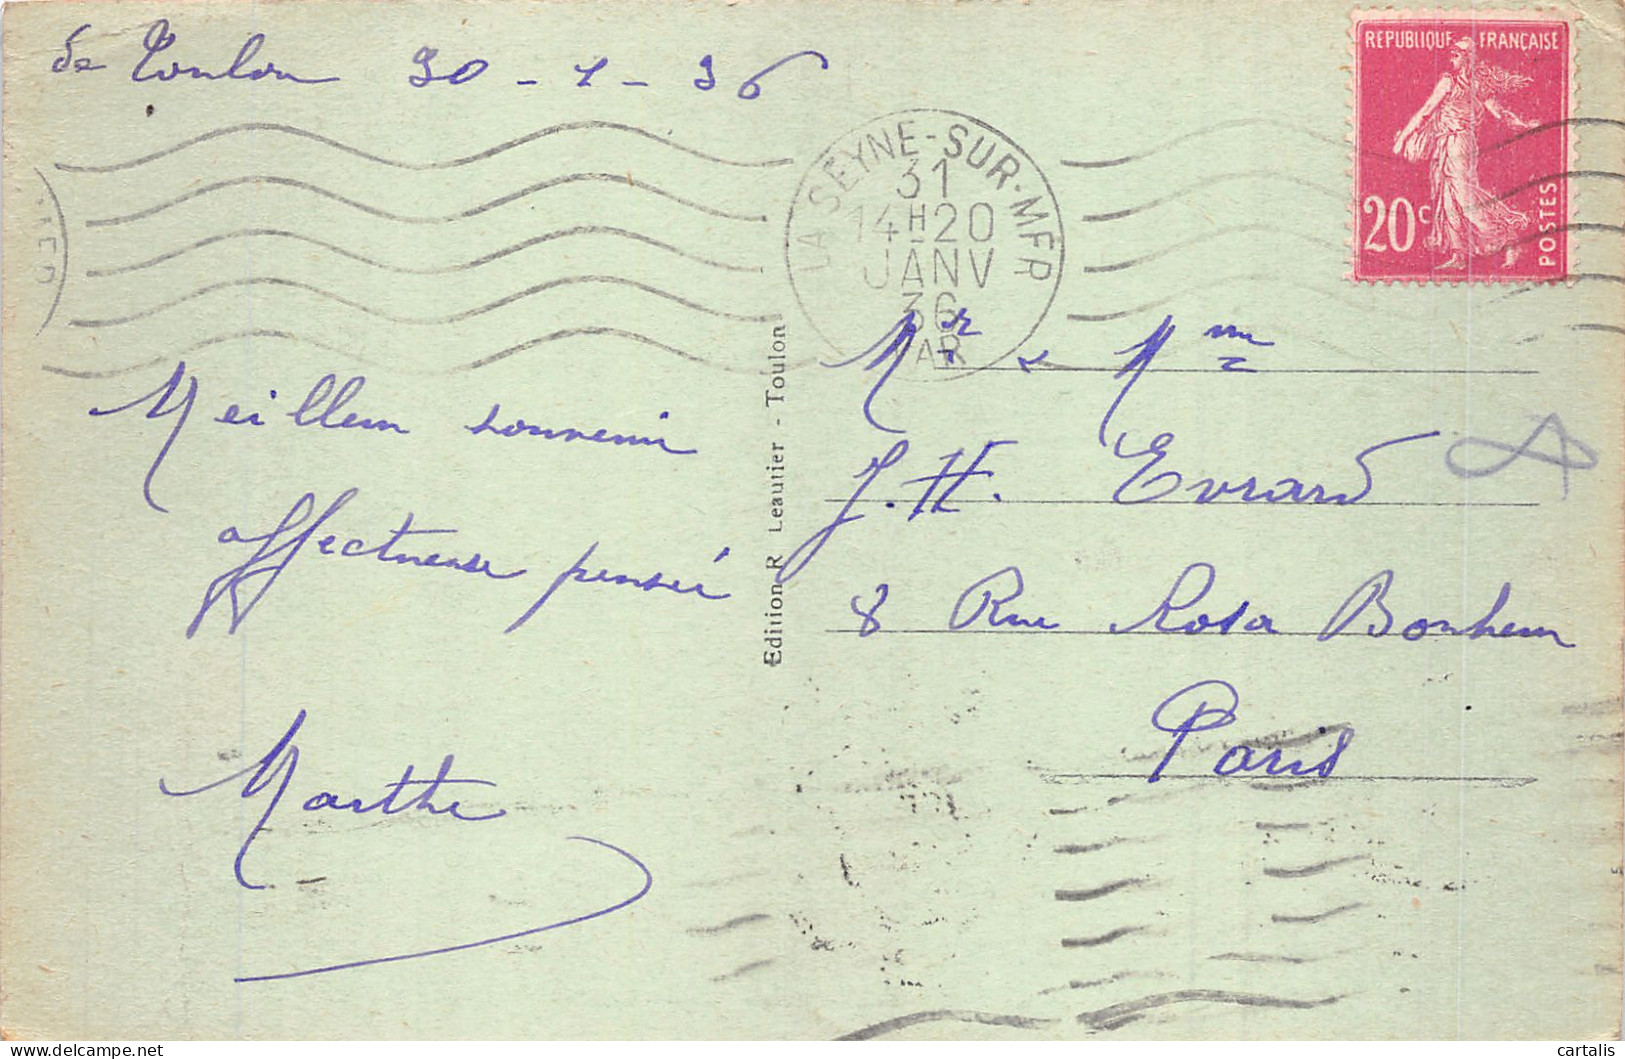 de Toulon 30-1-36
REPUBLIQUE FRANÇAISE
20c
POSTES
LA SEYNE-SUR-MER
31
14H20
JANV
36
VAR
Meilleur souvenir
affectueuse pensée
Marthe
Edition R Leautier - Toulon
Mr & Mme
J. H. Evrard
8 Rue Rosa Bonheur
Paris
cartalis